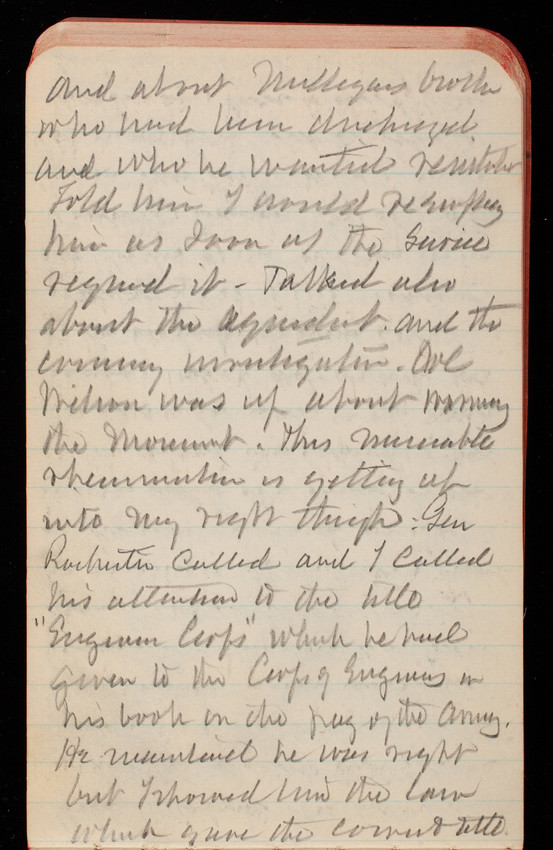 and about Milligans brother
who had been discharged
and who he wanted reinstated
Told him I would reemploy
him as soon as the service
required it - Talked also
about the aqueduct. and the
coming investigation. Col
Wilson was up about moving
the Monument. This miserable
rheumatism is getting up
into my right thigh. Gen
Rochester called and I called
his attention to the title
"Engineer Corps" which he had
given to the Corps of Engineers in
his book on the pay of the Army.
He maintained he was right
but I showed him the law
which gave the correct title.